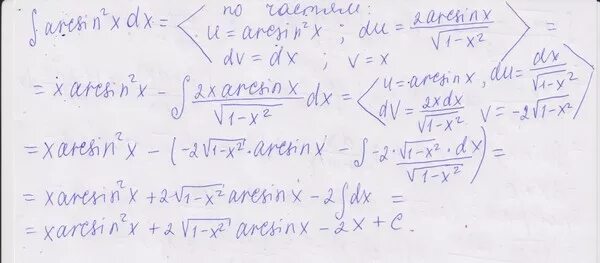 ∫ arcsin²x dx = < по частям: u = arcsin²x ; du = 2arcsinx/√(1-x²) dv = dx ; v = x > =
= x arcsin²x - ∫ 2x arcsinx/√(1-x²) dx = < u = arcsinx, du = dx/√(1-x²) dV = 2xdx/√(1-x²) V = -2√(1-x²) >
= x arcsin²x - (-2√(1-x²) · arcsinx - ∫ -2 · √(1-x²) · dx/√(1-x²)) =
= x arcsin²x + 2√(1-x²) arcsinx - 2∫dx =
= x arcsin²x + 2√(1-x²) arcsinx - 2x + C.